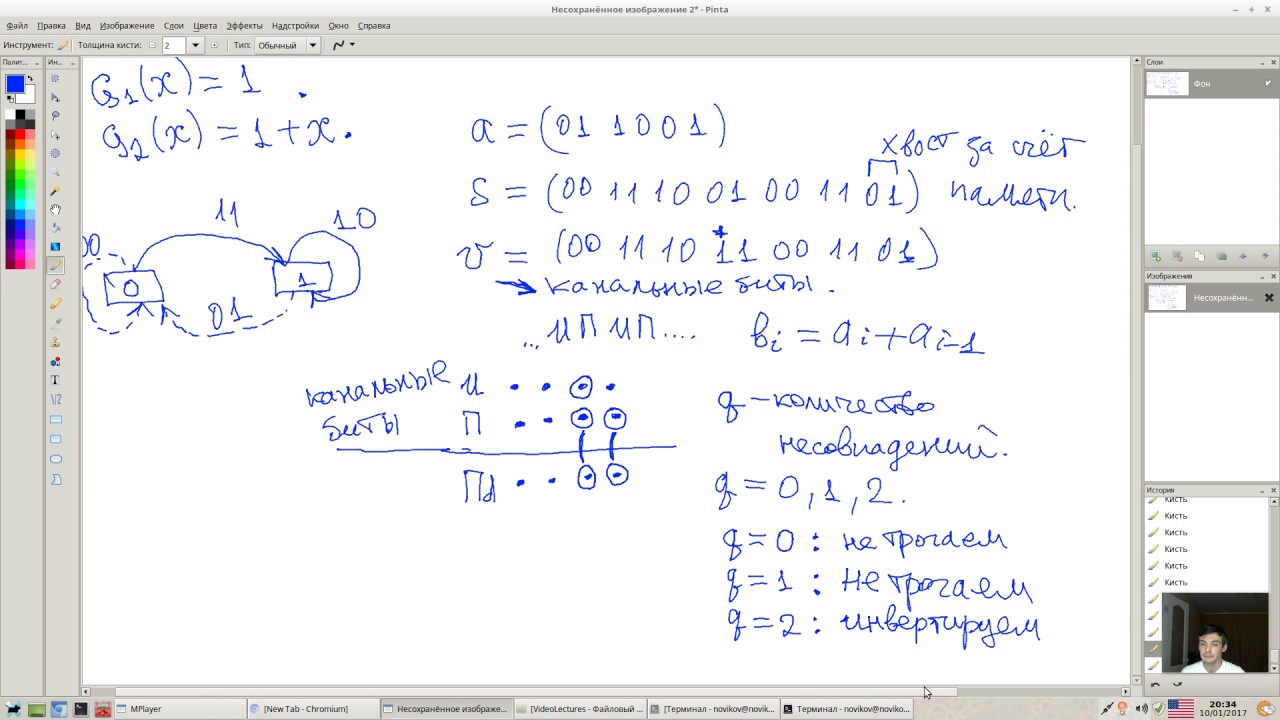 Несохранённое изображение 2* - Pinta
Файл Правка Вид Изображение Слои Цвета Эффекты Надстройки Окно Справка
Инструмент: Толщина кисти: 2 Тип: Обычный
Палит...
Ин...
Слои
Фон
Изображения
Несохранённ...
История
Кисть
Кисть
Кисть
Кисть
Кисть
Кисть
G1(x) = 1 .
G2(x) = 1 + x .
a = (01 1001)
хвост за счёт
S = (00 11 10 01 00 11 01) памяти.
v = (00 11 10 11 00 11 01)
канальные биты.
11
10
0
1
01
... ИП ИП .... bi = ai + ai-1
канальные биты
И
П
Пд
q - количество
несовпадений.
q = 0, 1, 2.
q = 0 : не трогаем
q = 1 : не трогаем
q = 2 : инвертируем
MPlayer
[New Tab - Chromium]
Несохранённое изображе...
[VideoLectures - Файловый ...
[Терминал - novikov@novik...
Терминал - novikov@noviko...
20:34
10/01/2017